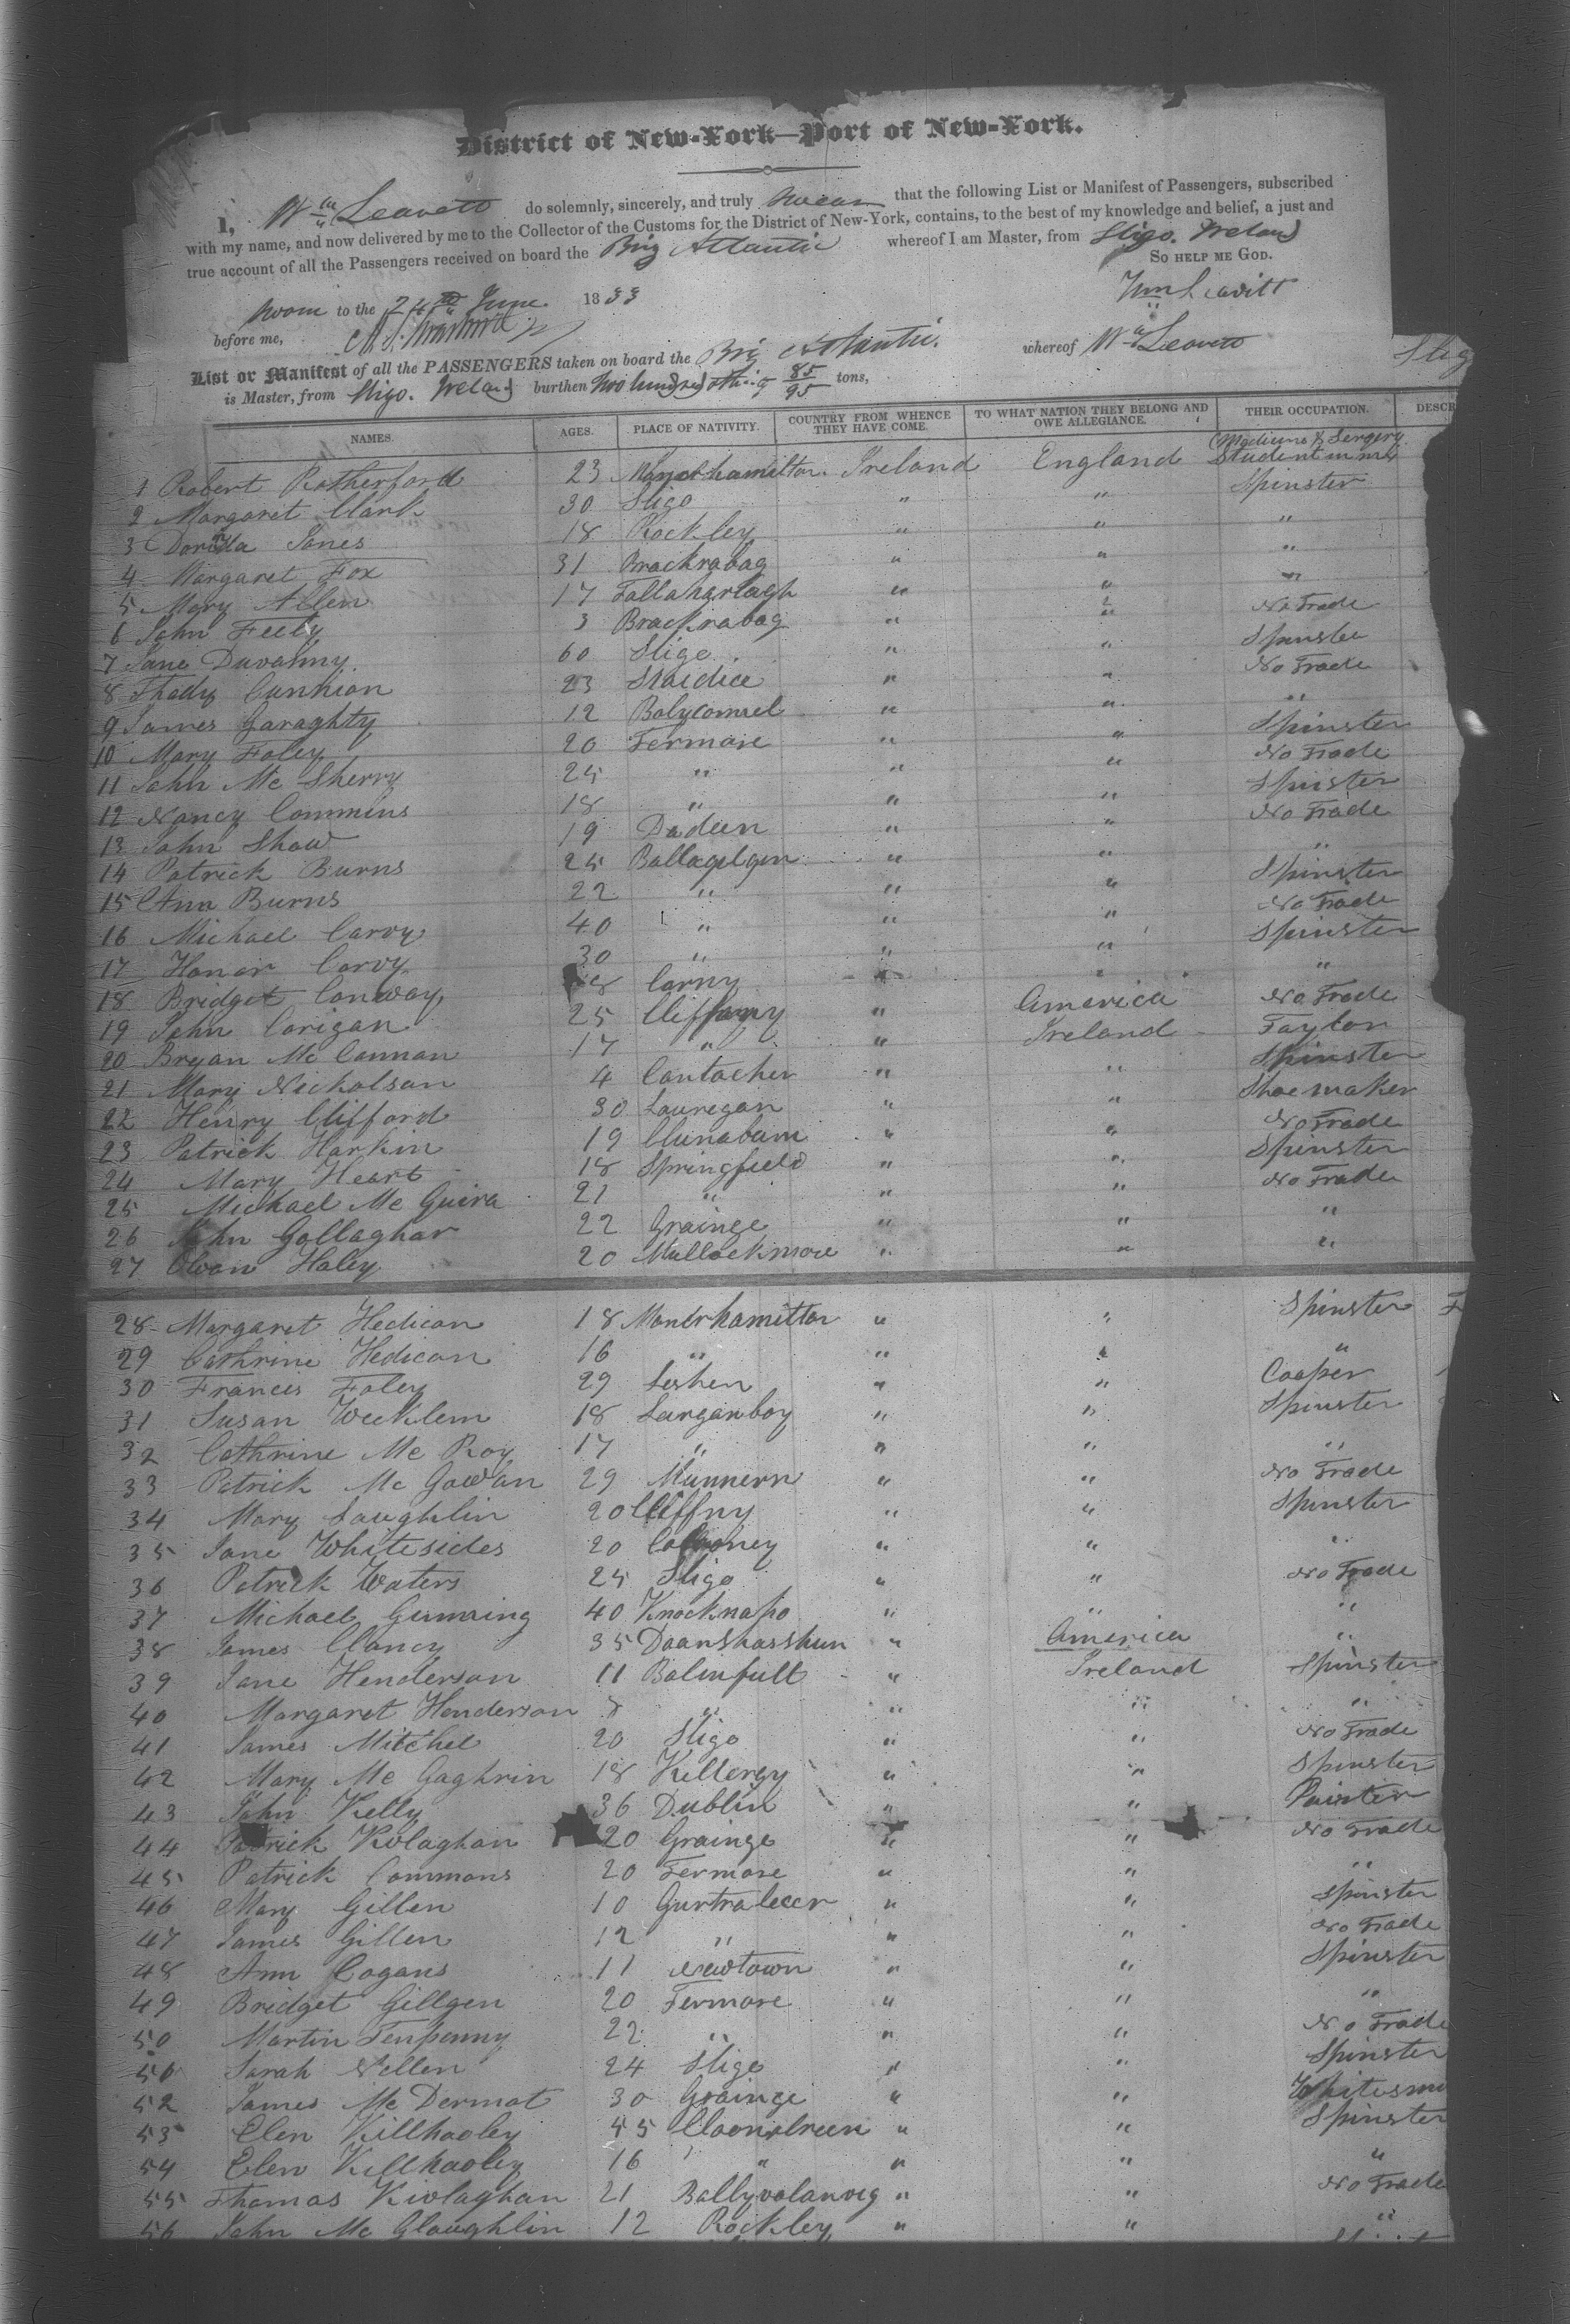 District of New-York—Port of New-York.
I, Wm Leavett do solemnly, sincerely, and truly swear that the following List or Manifest of Passengers, subscribed
with my name, and now delivered by me to the Collector of the Customs for the District of New-York, contains, to the best of my knowledge and belief, a just and
true account of all the Passengers received on board the Brig Atlantic whereof I am Master, from Sligo. Ireland
So HELP ME GOD.
Sworn to the 24th June 1833
Wm Leavitt
before me,
List or Manifest of all the PASSENGERS taken on board the Brig Atlantic. whereof Wm Leavett
is Master, from Sligo. Ireland burthen two hundred & thirty 85/95 tons,
Slig
NAMES. AGES. PLACE OF NATIVITY. COUNTRY FROM WHENCE THEY HAVE COME. TO WHAT NATION THEY BELONG AND OWE ALLEGIANCE. THEIR OCCUPATION. DESCR
1 Robert Rotherford 23 Ireland England Student in Medicine & Surgery
2 Margaret Clark 30 Sligo " " Spinster
3 Jones 18 Rockley " " "
4 Margaret Fox 31 Brackrabag " " "
5 Mary Allen 17 " " "
6 John Feely 3 Brackrabag " " No Trade
7 Jane Duvahny. 60 Sligo " " Spinster
8 Thady Cunnion 23 " " No Trade
9 James Garaghty 12 " " "
10 Mary Foley 20 Fermore " " Spinster
11 John Mc Sherry 25 " " " No Trade
12 Nancy Commins 18 " " " Spinster
13 John Shaw 19 Dadeen " " No Trade
14 Patrick Burns 25 Ballagelgen " " "
15 Ann Burns 22 " " " Spinster
16 Michael Carvy 40 " " " No Trade
17 Honor Carvy 30 " " " Spinster
18 Bridget Conway 18 Carny " " "
19 John Corigan 25 Cliffony " America No Trade
20 Bryan Mc Cannan 17 " " Ireland Taylor
21 Mary Nicholson 4 Cantacher " " Spinster
22 Henry Clifford 30 Lauregan " " Shoemaker
23 Patrick Harkin 19 Clunabum " " No Trade
24 Mary Heart 18 Springfield " " Spinster
25 Michael Mc Guira 21 " " " No Trade
26 John Gollaghar 22 Grainge " " "
27 Owan Haley 20 Mullockmore " " "
28 Margaret Hedican 18 Manerhamilton " " Spinster
29 Cathrine Hedican 16 " " " "
30 Francis Foley 29 Leshen " " Cooper
31 Susan Weeklem 18 Larganboy " " Spinster
32 Cathrine Mc Roy 17 " " " "
33 Patrick Mc Gowan 29 Munnern " " No Trade
34 Mary Laughlin 20 Cliffny " " Spinster
35 Jane Whitesides 20 Calooney " " "
36 Patrick Waters 25 Sligo " " No Trade
37 Michael 40 Knocknapo " " "
38 James Clancy 35 " America "
39 Jane Henderson 11 Balinfull " Ireland Spinster
40 Margaret Henderson 8 " " " "
41 James Mitchel 20 Sligo " " No Trade
42 Mary Mc Gaghrin 18 Killergy " " Spinster
43 John Kelly 36 Dublin " " Painter
44 Patrick Kivlaghan 20 Grainge " " No Trade
45 Patrick Commons 20 Fermore " " "
46 Mary Gillen 10 Gurtraleeer " " Spinster
47 James Gillen 12 " " " No Trade
48 Ann Cogans 11 Newtown " " Spinster
49 Bridget Gillgen 20 Fermore " " "
50 Martin Tenpenny 22 " " " No Trade
Sarah Nellen 24 Sligo " " Spinster
52 James Mc Dermot 30 Grainge " " Whitesmi
53 Elen Killhooley 45 " " Spinster
54 Elen Killhooley 16 " " " "
55 Thomas Kivlaghan 21 Ballyvolanvog " " No Trade
56 John Mc Gloughlin 12 Rockley " " "